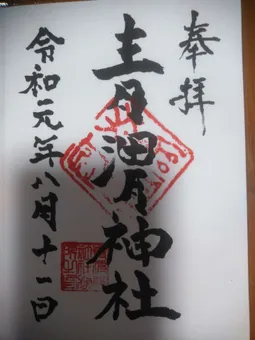 奉拝
青渭神社
令和元年八月十一日